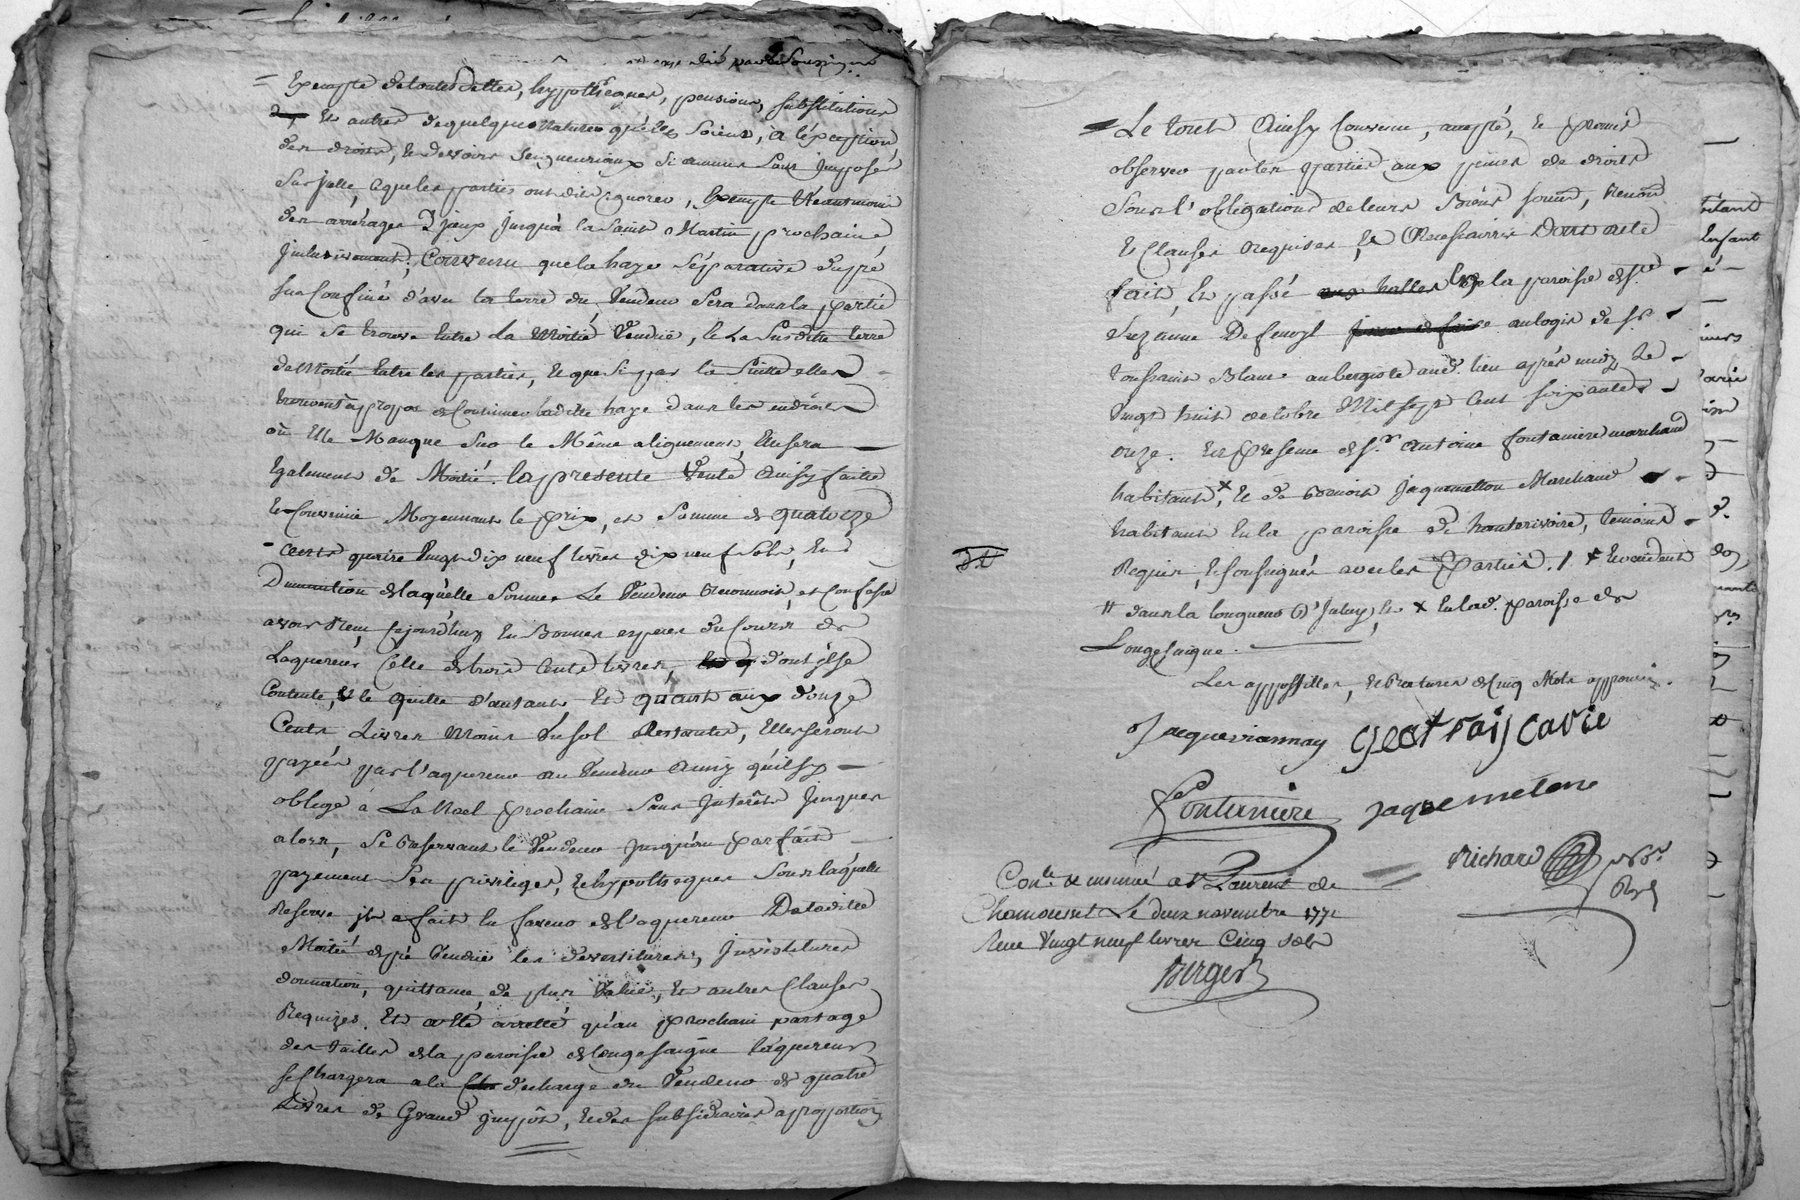 Exempte de toutes dettes, hypotheques, pensions, substitutions
et autres de quelques natures qu'elles soient, a l'exception
des droits, et devoirs seigneuriaux si aucuns sont imposés
sur jcelle, aqueles parties ont dit ignorer, Exempte Neantmoins
des arrérages d'jceux jusqu'a la Saint Martin prochaine
jnclusivement; Convenu que la haye séparative du pré
sus Confiné d'avec la terre du Vendeur sera dans la partie
qui se trouve Entre la Moitié Vendüe, et la susditte terre
de Moitié Entre les parties, et que si par la suitte elles
trouvent apropos de Continuer laditte haye dans les endroits
où Elle Manque sur le Même alignement, Ensera
Egalement de Moitié. la presente Vente Ainsy faitte
et Convenüe Moyennant le prix, et somme de quatorze
cents quatre Vingt dix neuf livres dix neuf sols, En
Diminution de laquelle somme Le Vendeur Reconnoit, et Confesse
avoir Reçu cejourd'huy En Bonnes especes du Cours de
Laquereur Celle de trois Cents livres, dont jl se
Contente, et le quitte d'autant Et quant aux d'onze
Cents Livres Moins Un sol Restantes, Elles seront
payées par l'aquereur au Vendeur Ainsy qu'il sy
oblige a La Noel prochaine sans jnterêts jusques
alors, se Reservant le Vendeur jusqu'au parfait
payement ses privileges, et hypotheques sous laquelle
Reserve jl a fait En faveur de l'aquereur De laditte
Moitié de pré Vendüe les devestitures, jnvestitures
donnation, quittance, de plus Value, et autres Clauses
Requizes. Et a été arretté qu'au prochain partage
des tailles de la paroisse de longesaigne l'aquereur
se Chargera a la d'echarge du Vendeur de quatre
Livres de Grand jmpôt, et des subsidiaires apropportion
Le tout Ainsy Convenu, accepté, et promis
observer par les parties aux peines de droits
Sous l'obligations de leurs Biens soum, Renon
Et Clauses Requises, Et Necessaires Dont acte
fait, Et passé En la paroisse de Ste
au logis de Sr
toussaint Blanc aubergiste aud. lieu après midy Le
Vingt huit octobre Mil sept Cent soixante
onze. En presence de Sr Antoine fontaniere marchand
habitant, Et de Benoit Jaquemetton Marchand
habitant En la paroisse de hauterivoire, temoins
Requis, Et soussignés avec les Parties. /
Longesaigne.
Les appostilles, et Ratures de Cinq Mots approuvés.
fontaniere Jaquemetone
Richard
Conlé et insinué a St Laurent de
Chamousset Le deux novembre 1771
Reçu Vingt neuf livres Cinq sols
Berger